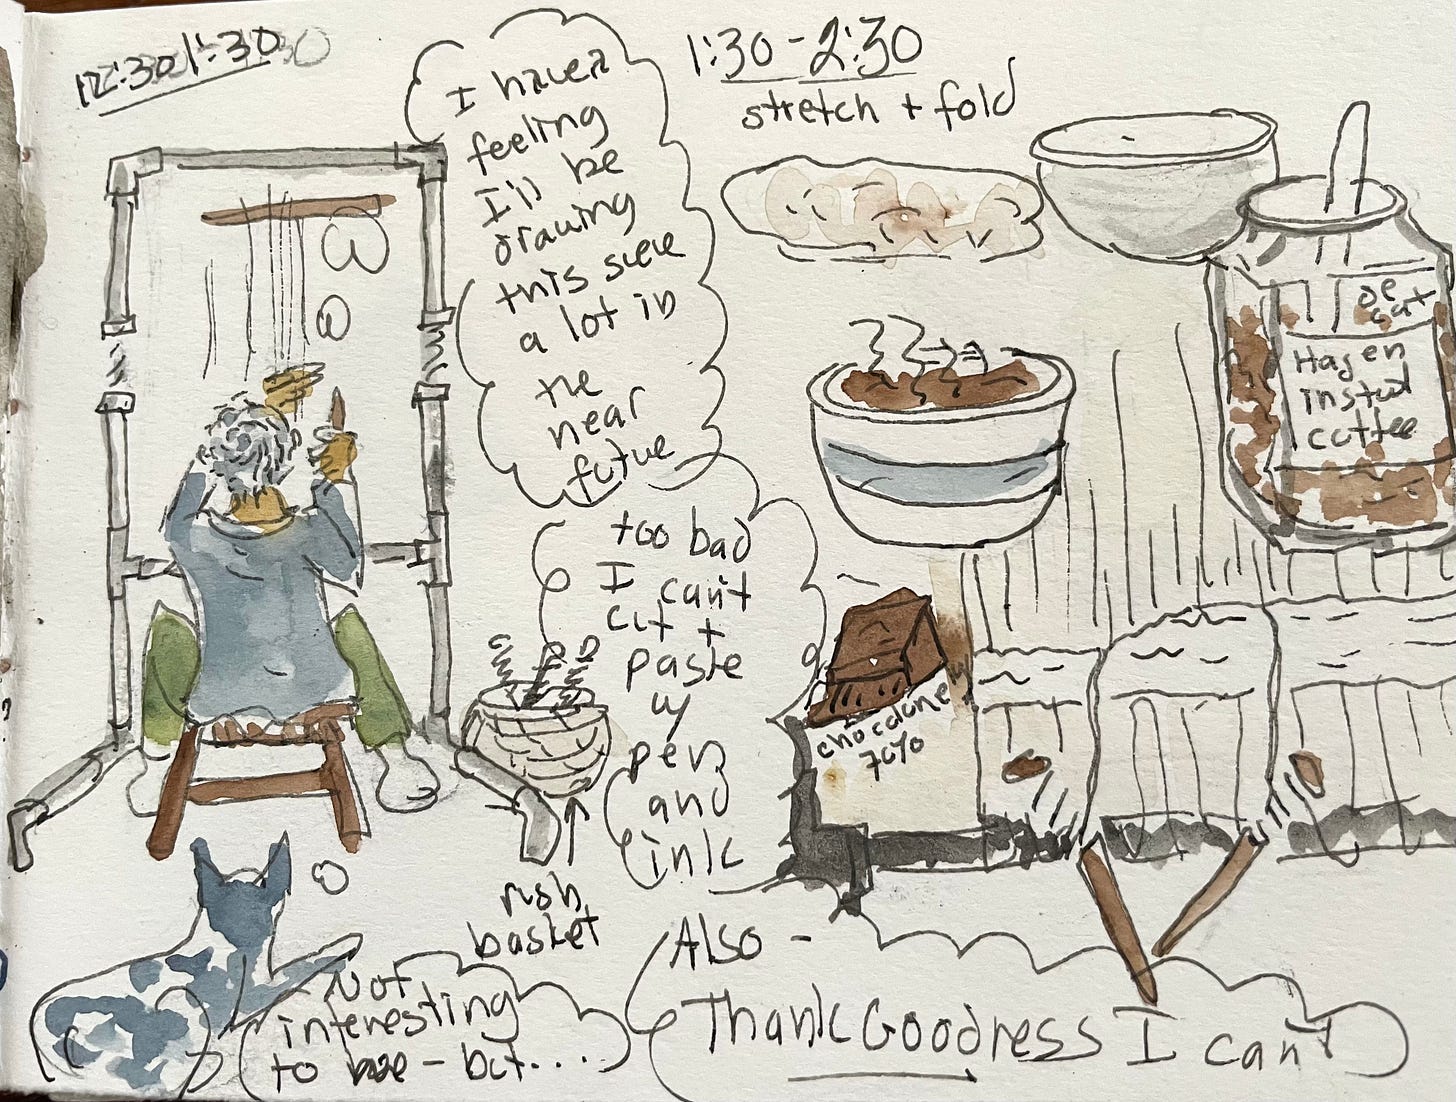 12:30-1:30
I have a
feeling
I'll be
drawing
this scene
a lot in
the
near
future
too bad
I can't
cut +
paste
w/
pen
and
ink
Also -
Thank Goodness I can't
rush
basket
Not
interesting
to me - but....
1:30 - 2:30
stretch + fold
De
caf
Hagen
instant
coffee
chocolone
70%